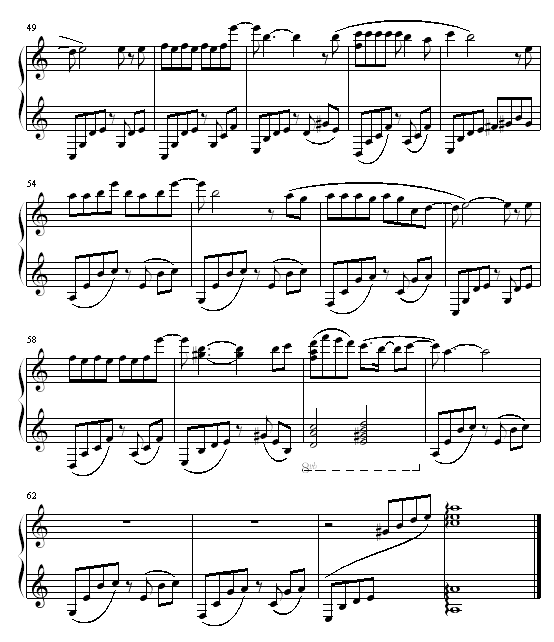 49
54
58
8va
62